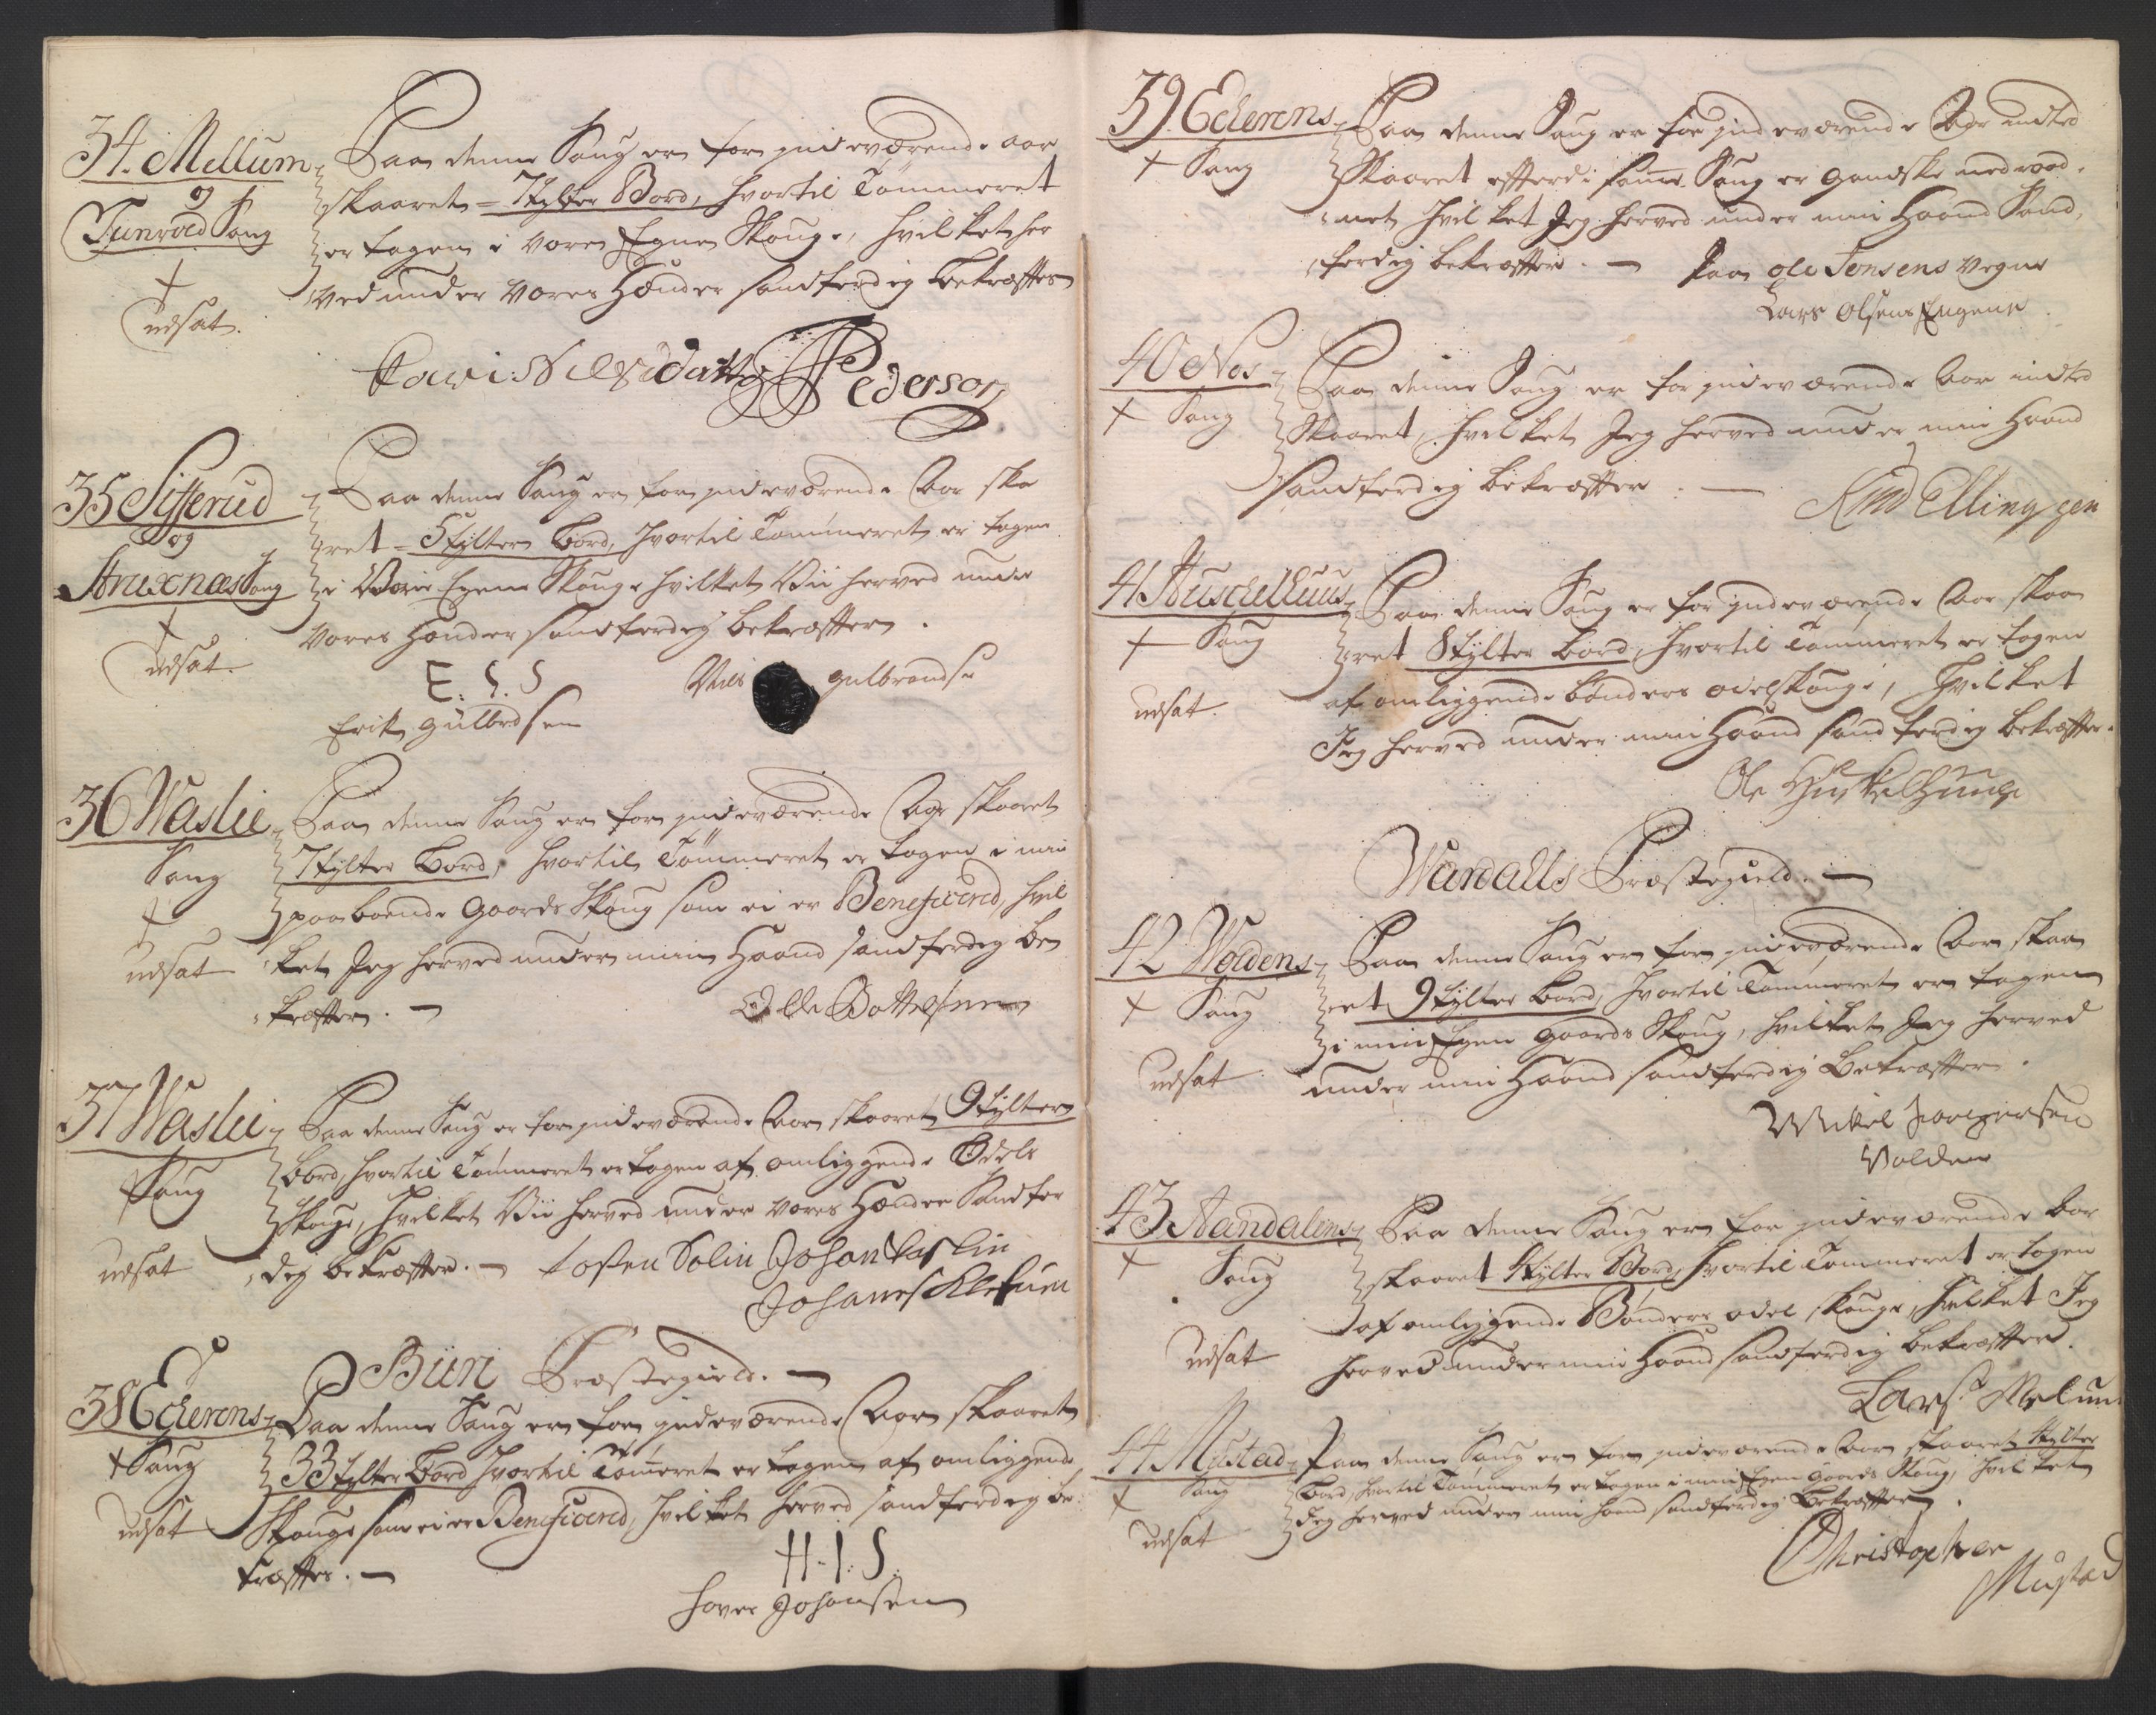 34. Mellum
og
Tunvold Saug
+
udsat.
Paa denne Saug er for indeværende aar
skaaret = 7 tylter Bord, hvortil Tømmeret
er tagen i vores Egne Skouge, hvilket her
ved under vores Hænder sandferdig bekræfftes
Kari Nilsdatter Pederson
35 Sifferud
og
Struxnæs Saug
+
udsat.
Paa denne Saug er for indeværende Aar ska
aret = 5 tylter Bord, hvortil Tømmeret er tagen
i Vores Egene Skouge hvilket Vii herved under
vores Hænder sandferdig bekræffter.
E. G. S
Erik gulbrdsen
Niels gulbrands:
36 Waslie
Saug
+
udsat
Paa denne Saug er for indeværende Aar skaaret
7 tylter Bord, hvortil Tømmeret er tagen i min
paaboende Gaards Skoug som ei er Beneficered, hvil
ket Jeg herved under min Haand sandferdig be
kræffter. —
37 Waslie
Saug
udsat
Paa denne Saug er for indeværende Aar skaaret 9 tylter
Bord, hvortil Tømmeret er tagen af omliggende Odels
Skouge, hvilket Vii herved under vores Hænder Sandfer
dig bekræffter. — tosten Solin Johan Vaslin
Johanes
Biiri Præstegield. —
38 Eckerens
+ Saug
udsat
Paa denne Saug er for indeværende Aar skaaret
33 tylter Bord hvortil Tømeret er tagen af omliggende
Skouge som ei er Beneficered, hvilket herved sandferdig be:
kræffter. —
H. I. S.
hover Johansen
39. Eckerens
+ Saug
Paa denne Saug er for indeværende Aar indted
Skaaret efterdi samme Saug er gandske nedraad,
net, hvilket Jeg herved under min Haand Sand,
ferdig bekræffter. — Paa ole Jensens Vegne
Lars Olsens Engene
40 Nes
+ Saug
Paa denne Saug er for indeværende Aar indted
Skaaret, hvilket Jeg herved under min Haand
sandferdig bekræffter. —
Knud Ellingsen
41 Huschelhuus
+ Saug
udsat.
Paa denne Saug er for indeværende Aar skaa
ret 8 tylter Bord, hvortil Tømmeret er tagen
af omliggende bønders odelskouge, hvilket
Jeg herved under min Haand sandferdig bekræffter.
Ole
Wardalls Præstegield. —
42 Woldens
+ Saug
udsat
Paa denne Saug er for indeværende Aar skaa
ret 9 tylter Bord, hvortil Tømmeret er tagen
i min Egen gaards Skoug, hvilket Jeg herved
under min Haand sandferdig bekræffter.
Mikel
Volden
43 Aandalens
+ Saug
udsat
Paa denne Saug er for indeværende Aar
skaaret 4 tylter Bord, hvortil Tømmeret er tagen
af omliggende Bønders odel skouge, hvilket Jeg
herved under min Haand sandferdig bekræffter.
Lars Melum
44 Mustad
+ Saug
udsat
Paa denne Saug er for indeværende Aar skaaret 4 tylter
Bord, hvortil Tømmeret er tagen i min Egen gaards Skoug, hvilket
Jeg herved under min haand sandferdig bekræffter.
Christopher
Mustad